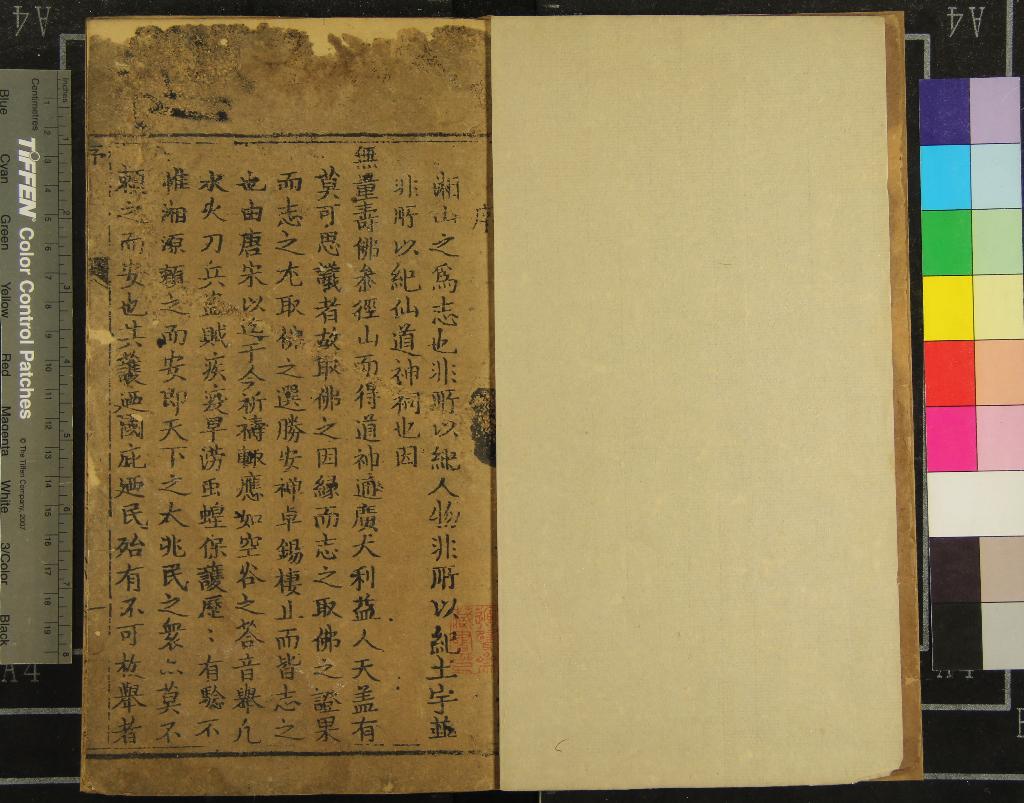 序
湘山之爲志也非所以紀人物非所以紀土宇並
非所以紀仙道神祠也因
無量壽佛參徑山而得道神通廣大利益人天盖有
莫可思議者故取佛之因緣而志之取佛之證果
而志之尤取佛之選勝安禅卓錫棲止而皆志之
也由唐宋以迄于今祈禱輒應如空谷之荅音舉凡
水火刀兵盗賊疾疫旱澇虫蝗保護歷:有驗不
惟湘源頼之而安即天下之大兆民之衆亦莫不
頼之而安也其護廽國庇廽民殆有不可枚舉者
序
一
Inches
Centimetres
TIFFEN Color Control Patches
© The Tiffen Company, 2007
Blue
Cyan
Green
Yellow
Red
Magenta
White
3/Color
Black
A4
A4
A4